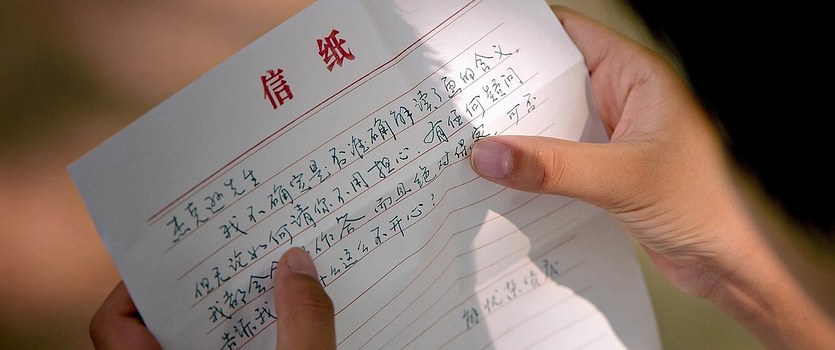 信纸
杰克逊先生
我不确定是否准确解读了画的含义。
但无论如何请你不用担心。有任何疑问
我都会 你答 而且绝对保密。可否
告诉我 什么这么不开心？
解忧杂货店